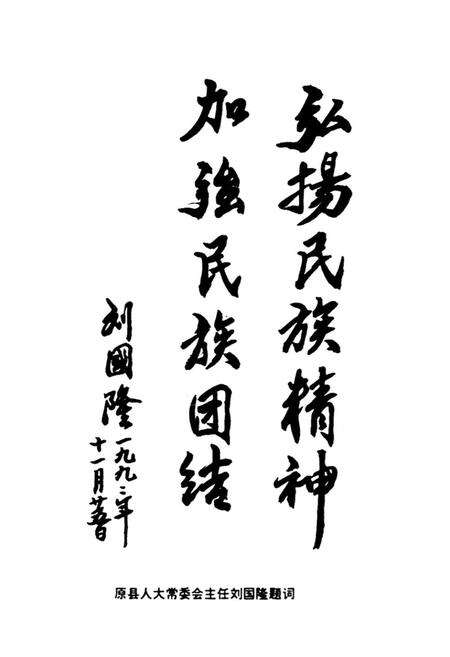 弘揚民族精神
加強民族团结
刘國隆
一九九二年
十一月廿五日
原县人大常委会主任刘国隆题词